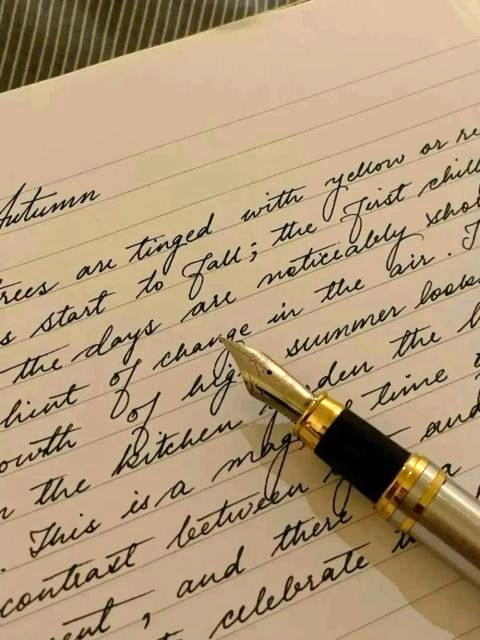 Autumn
trees are tinged with yellow or re
s start to fall; the first chill
the days are noticeably sho
hint of change in the air. T
owth of hig summer looks
n the kitchen den the l
. This is a mag time
contrast between and
ent, and there a
celebrate